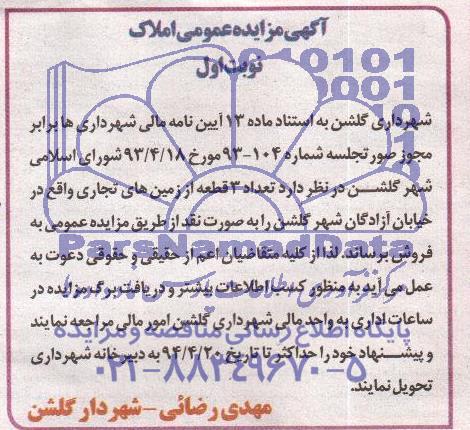 آگهی مزایده عمومی املاک
نوبت اول
شهرداری گلشن به استناد ماده ۱۳ آیین نامه مالی شهرداری ها برابر
مجوز صورتجلسه شماره ۱۰۴-۹۳ مورخ ۹۳/۴/۱۸ شورای اسلامی
شهر گلشن در نظر دارد تعداد ۳ قطعه از زمین های تجاری واقع در
خیابان آزادگان شهر گلشن را به صورت نقد از طریق مزایده عمومی به
ParsNamadData
فروش برساند. لذا از کلیه متقاضیان اعم از حقیقی و حقوقی دعوت به
عمل می آید به منظور کسب اطلاعات بیشتر و دریافت برگ مزایده در
ساعات اداری به واحد مالی شهرداری گلشن امور مالی مراجعه نمایند
پایگاه اطلاع رسانی مناقصه و مزایده
و پیشنهاد خود را حداکثر تا تاریخ ۹۴/۴/۲۰ به دبیرخانه شهرداری
۰۲۱-۸۸۲۴۹۶۷۰-۵
تحویل نمایند.
مهدی رضائی - شهردار گلشن